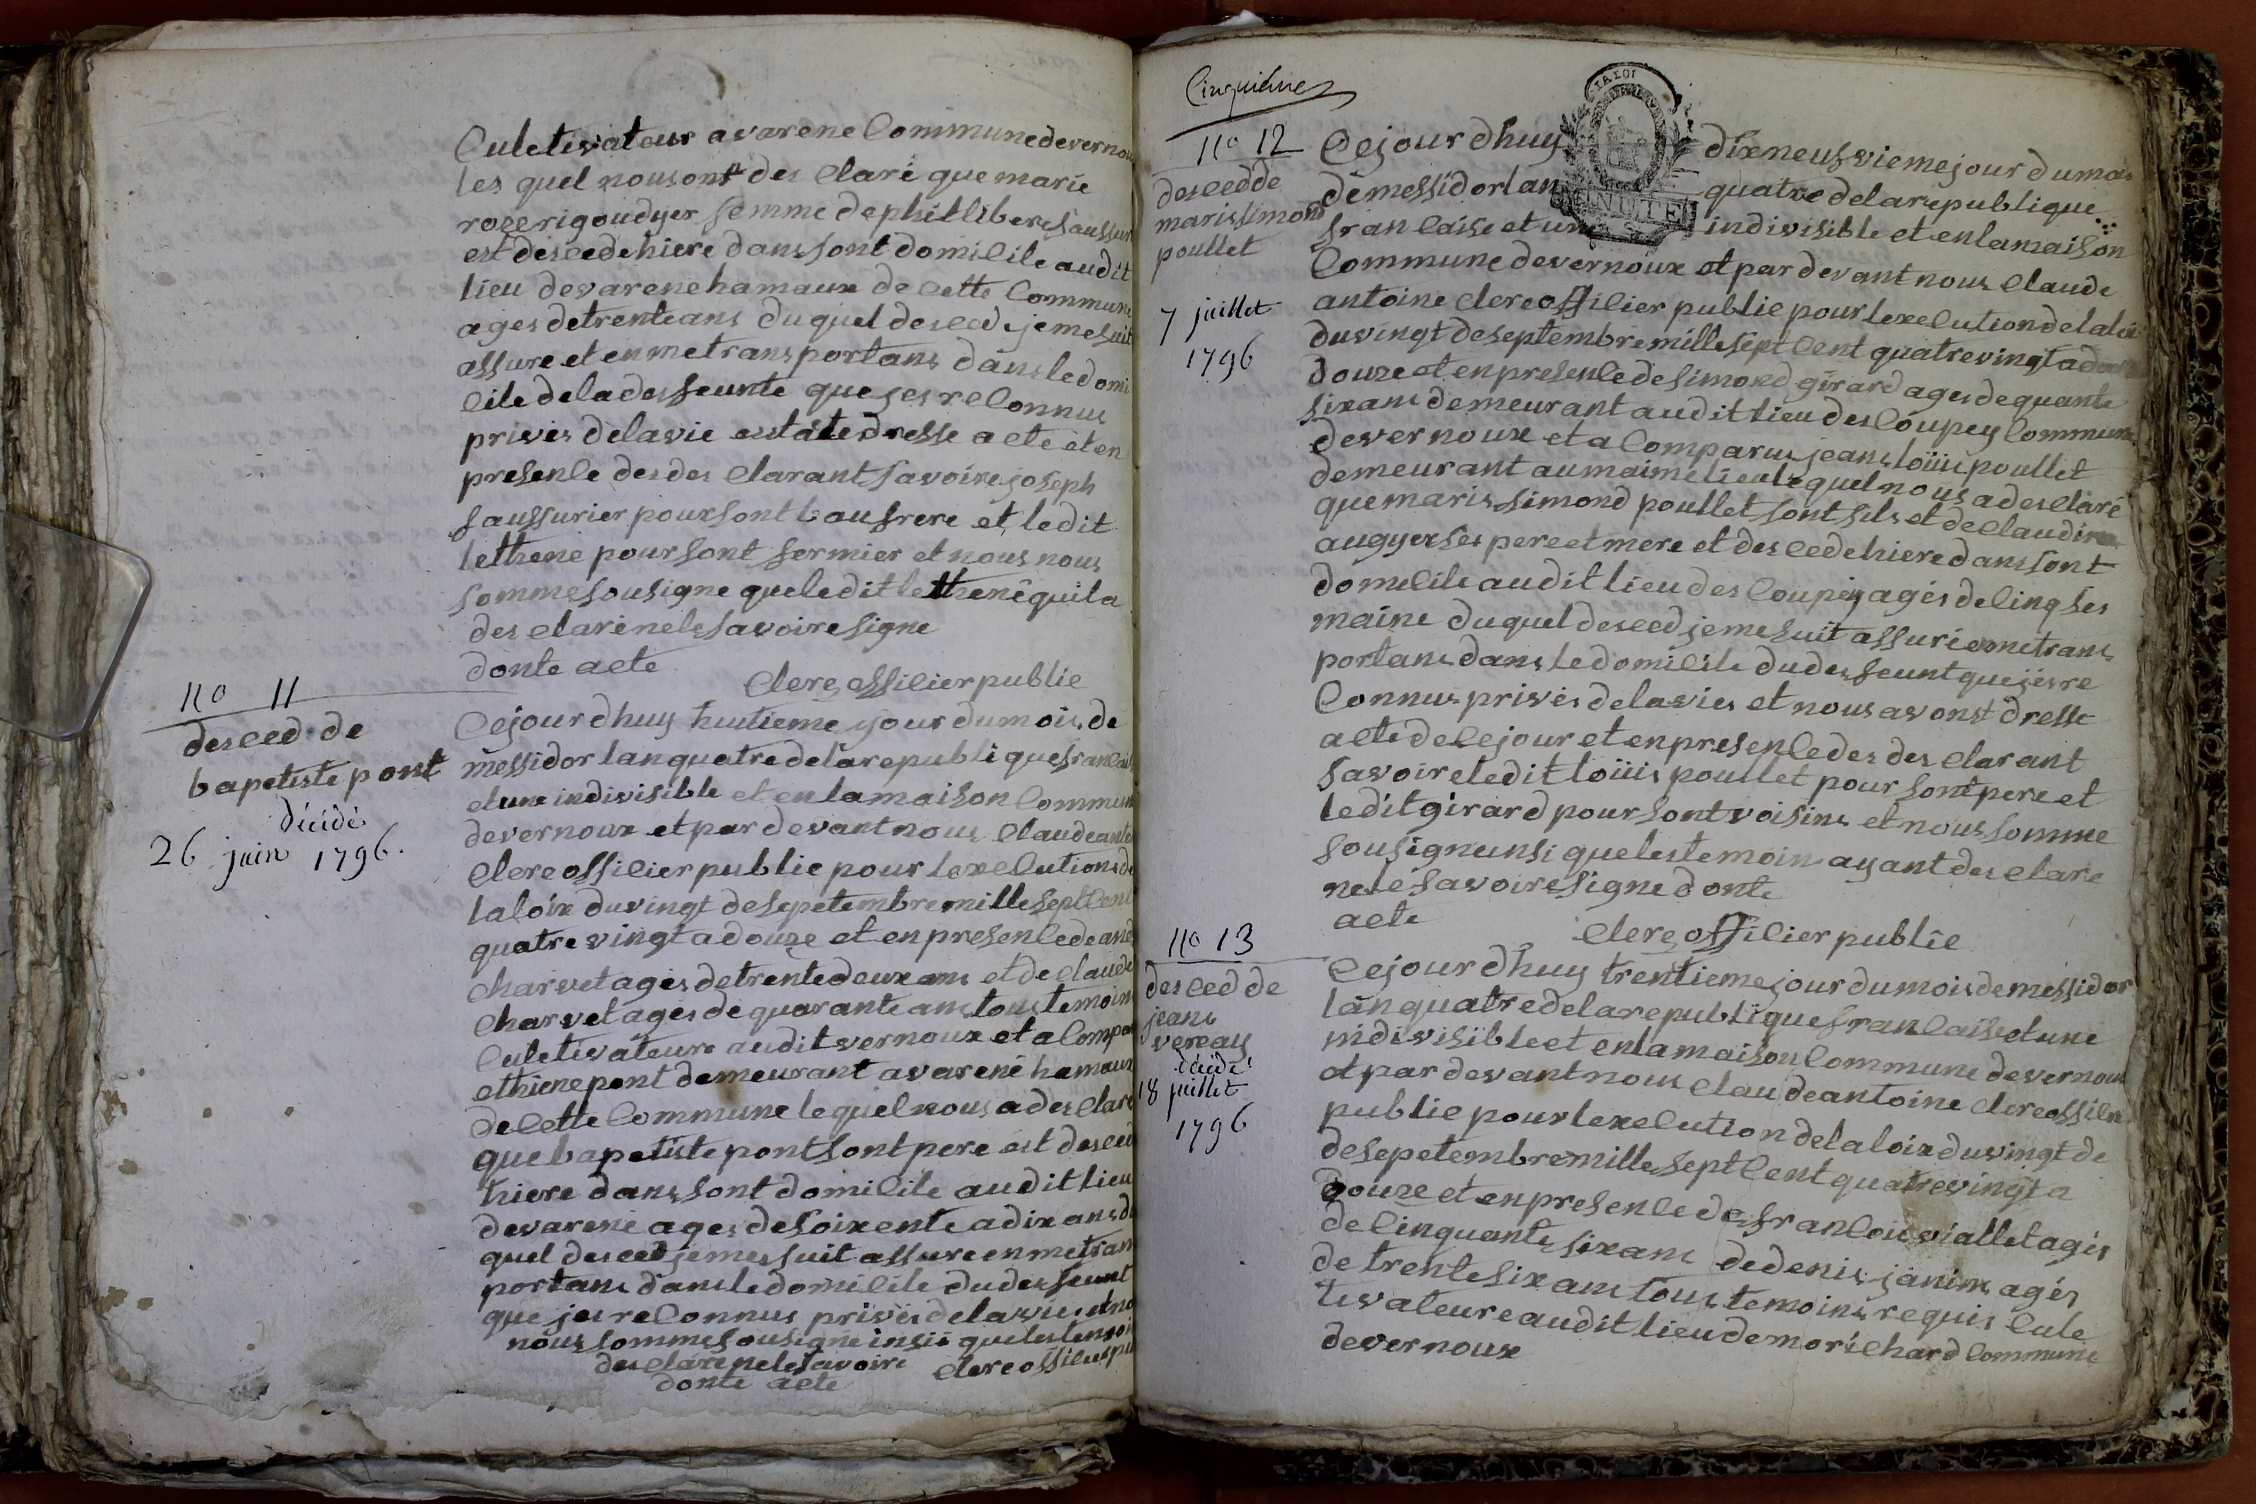 Culetivateur a varene Commune de verno
les quel nous ont des Claré que marie
roze rigoudyer femme de phitlibere saussur
est desede hiere dans sont domicile audit
lieu de varene hamaux de Cette Commune
ages de trente ans du quel desced je me suit
assure et en me trans portans dans le domi
cile de la desfeunte que jes re Connus
privés de la vie acte dresse a ete et en
presence des des Clarant savoire joseph
saussurier pour sont bau frere et le dit
lethene pour sont fermier et nous nous
somme sousigne que le dit lethene qui la
des Claré ne le savoire signe
donte acte
Clere officier public
no 11
desced de
bapetiste pont
décidé
26 juin 1796.
Ce jour dhuy huitieme jour du mois de
messidor lan quatre de la republique francais
et une indivisible et en la maison Commun
de vernoux et par devant nous Claude ante
Clere officier public pour lexecutions de
la loix du vingt de sepetembre mille sept Cent
quatre vingt a douze et en presence de ane
Charvet agés de trente deux ans et de Claude
Charvet agés de quarante ans tous temoin
Culetivateure audit vernoux et a Compa
ethiene pont demeurant a varené hamaux
de Cette Commune le quel nous a des Claré
que bapetiste pont sont pere est desced
hiere dans sont domicile audit lieu
de varene ages de soixente a dix ans d
quel desced je mes suit assure en me tran
portans dans le domicile du desfeunt
que jes re Connus privés de la vie et no
nous somme sousigne insii que les temoin
des Clare ne le savoire
donte acte
Clere officier pu
Cinquième
no 12
descedde
maris simond
poullet
7 juillet
1796
Ce jour dhuy dix neuf vieme jour du mois
de messidor lan quatre de la republique
francaise et une indivisible et en la maison
Commune de vernoux et par devant nous Claude
antoine Clere officier public pour lexecution de la loix
du vingt de septembre mille sept Cent quatre vingt a dou
douze et en presence de simond girard ages de quante
six ans demeurant audit lieu des Coupey Commune
de vernoux et a Comparus jeans loüis poullet
demeurant au maime lieu le quel nous a des Claré
que maris simond poullet sont fils et de Claudine
augyer ses pere et mere et des cede hiere dans sont
domicile audit lieu des Coupey agés de Cinq ses
maine du quel desced je me suit assuré en me trans
portans dans le domicile du desfeunt que jés re
Connus privés de la vies et nous avonst dresse
acte de Ce jour et en presence des des Clarant
savoire le dit loüis poullet pour sont pere et
le dit girard pour sont voisins et nous somme
sousigne insi que les temoin ayant des Clare
ne le savoire signe donte
acte
Clere officier public
no 13
desced de
jeans
vereay
décidé
18 juillet
1796
Ce jour dhuy trentieme jour du mois de messidor
lan quatre de la republique francaise et une
indivisible et en la maison Commune de vernoux
et par devant nous Claude antoine Clere officier
public pour lexecution de la loix du vingt de
de sepetembre mille sept Cent quatre vingt a
douze et en presence de francois viallet agés
de Cinquante six ans de denis janins agés
de trente six ans tous temoins requis Cule
tevateure audit lieu de morichard Commune
de vernoux
LA LOI